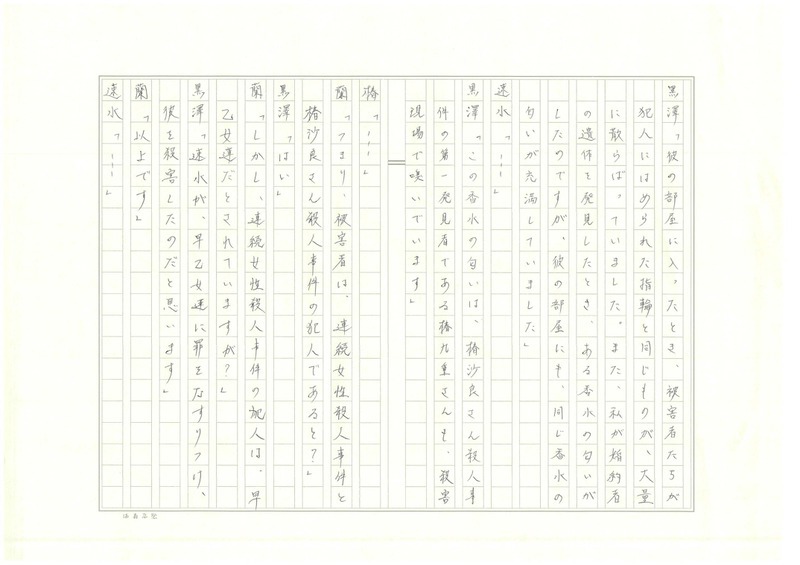 黒澤「彼の部屋に入ったとき、被害者たちが
犯人にはめられた指輪と同じものが、大量
に散らばっていました。また、私が婚約者
の遺体を発見したとき、ある香水の匂いが
したのですが、彼の部屋にも、同じ香水の
匂いが充満していました」
速水「―――」
黒澤「この香水の匂いは、椿沙良さん殺人事
件の第一発見者である椿九重さんも、殺害
現場で嗅いでいます」
椿「―――」
蘭「つまり、被害者は、連続女性殺人事件と
椿沙良さん殺人事件の犯人であると?」
黒澤「はい」
蘭「しかし、連続女性殺人事件の犯人は、早
乙女達だとされていますが?」
黒澤「速水が、早乙女達に罪をなすりつけ、
彼を殺害したのだと思います」
蘭「以上です」
速水「―――」